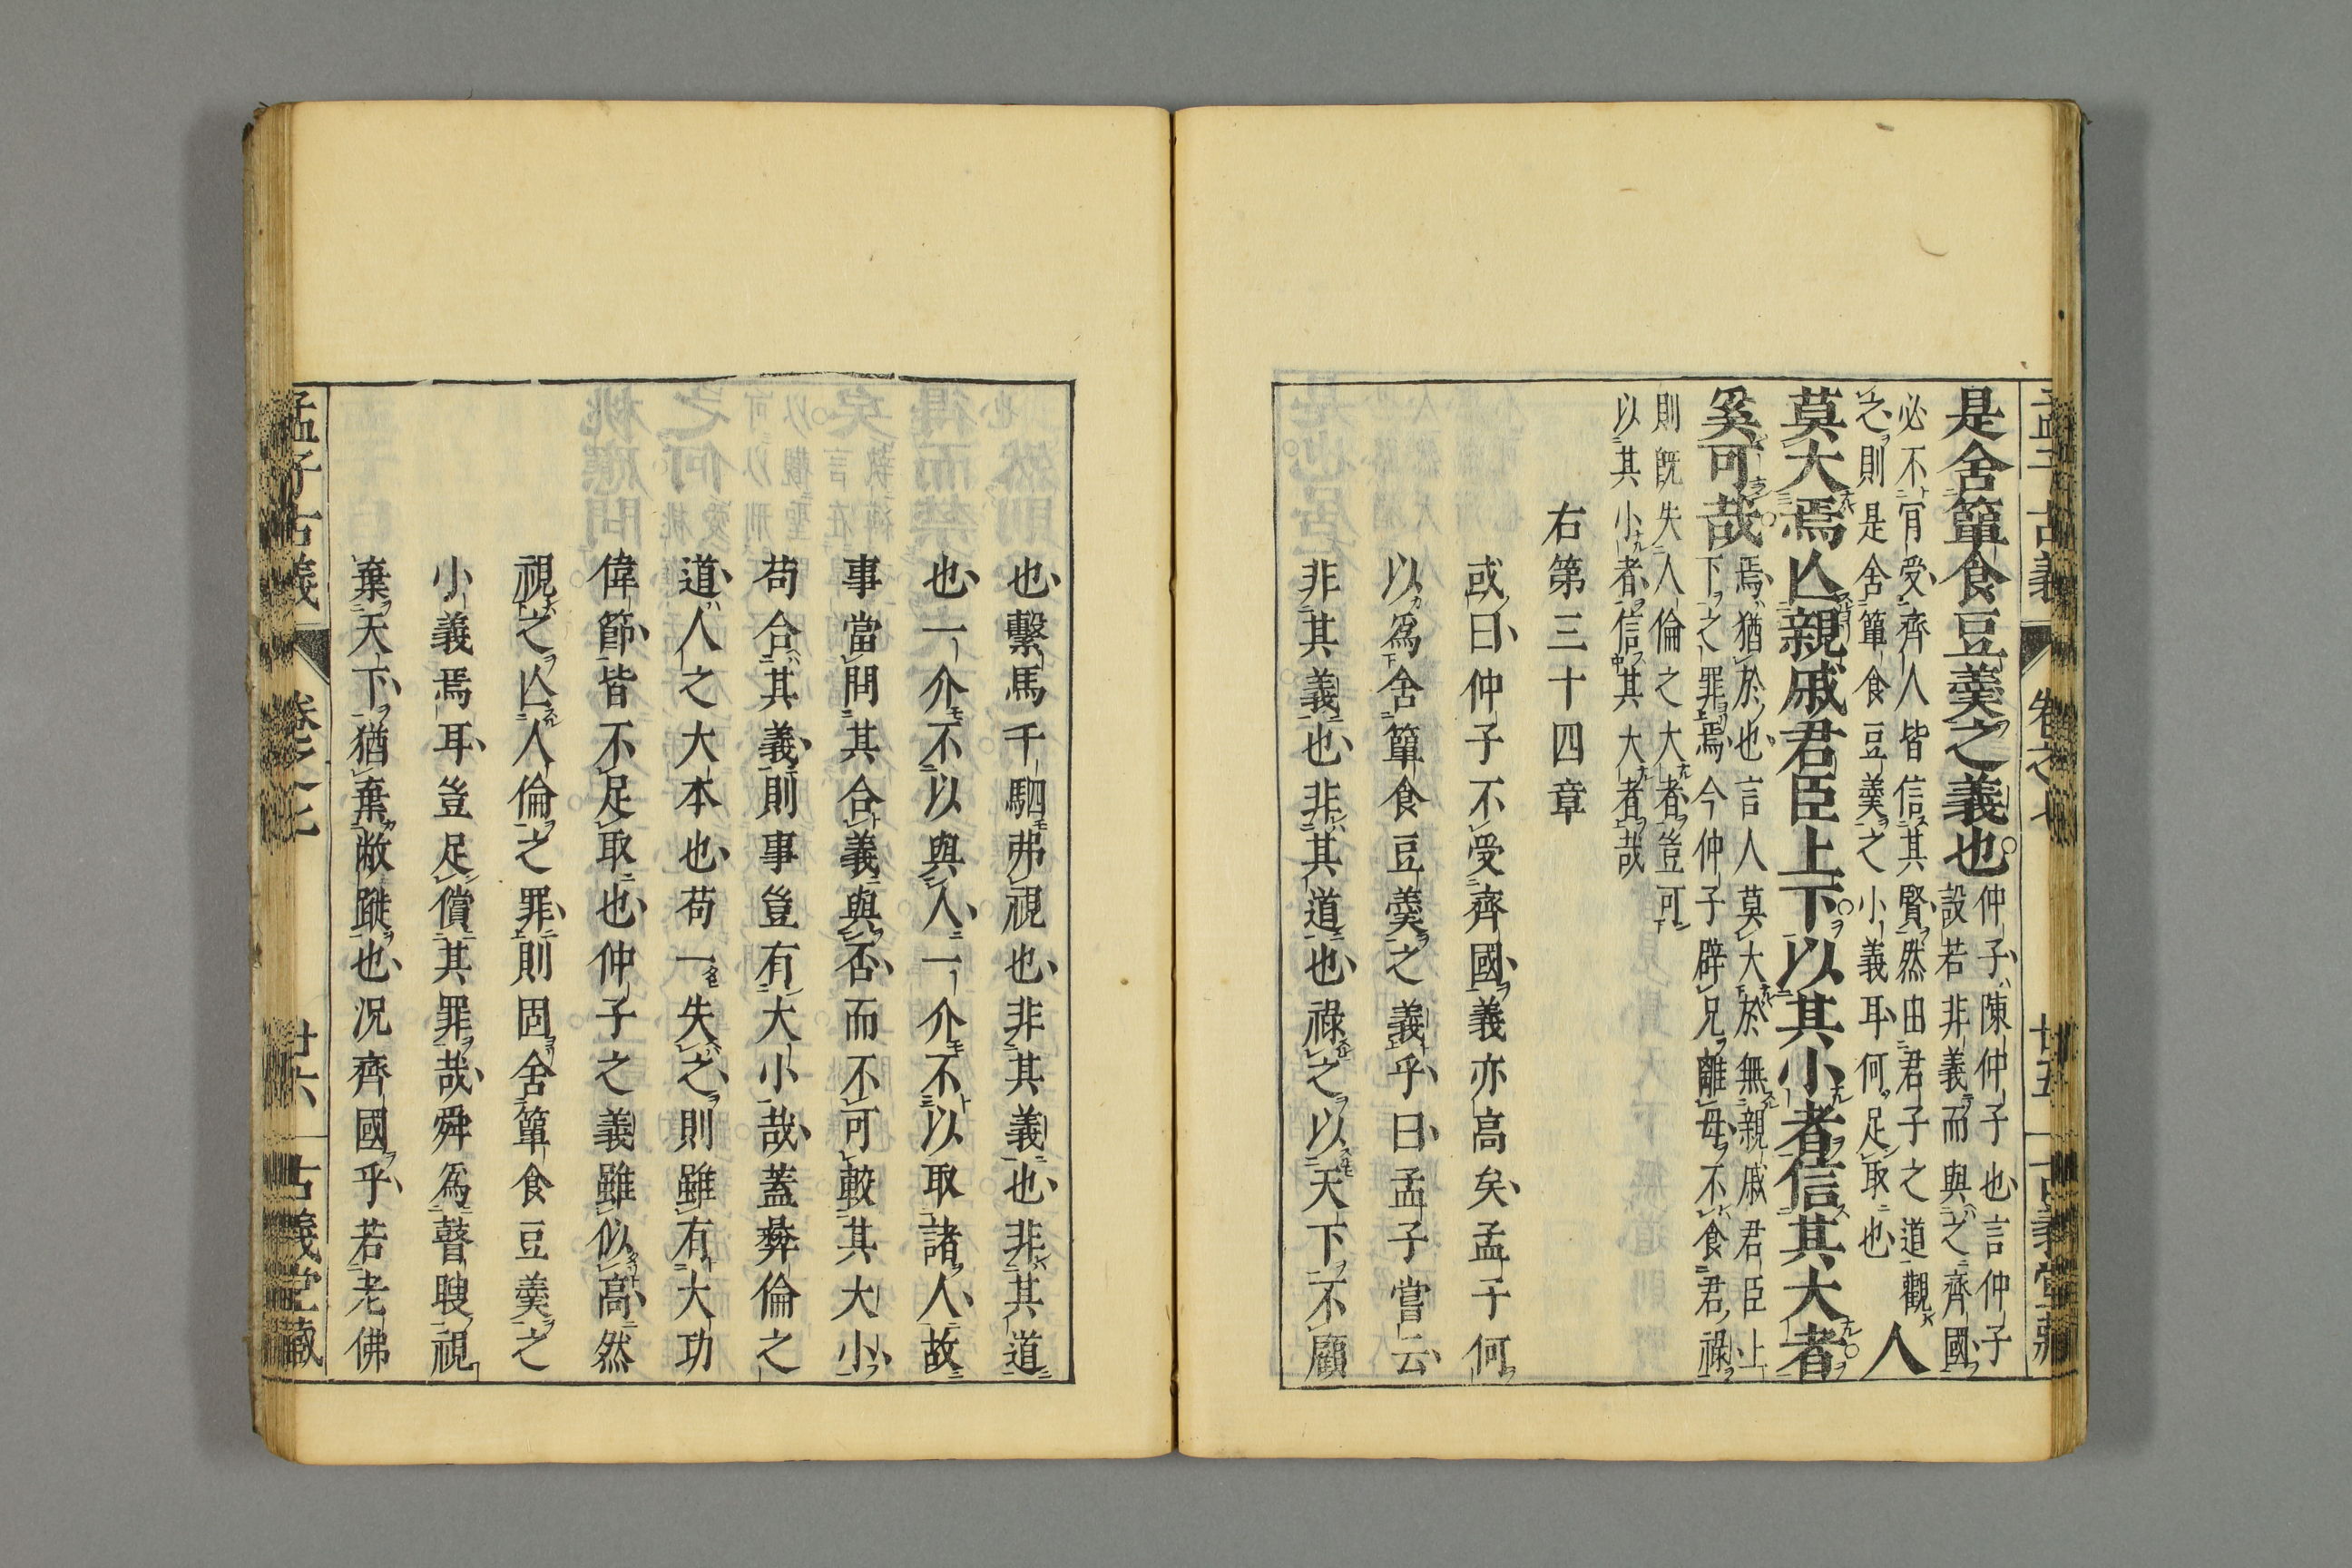 孟子古義 卷之七 廿五 古義堂藏
是舍簞食豆羹之義也
仲子陳仲子也言仲子
設若非義而與之齊國
必不肎受齊人皆信其賢然由君子之道觀
之則是舍簞食豆羹之小義耳何足取也
人
莫大焉亾親戚君臣上下以其小者信其大者
奚可哉
焉猶於也言人莫大於無親戚君臣上
下之罪焉今仲子辟兄離母不食君祿
則旣失人倫之大者豈可
以其小者信其大者哉
右第三十四章
或曰仲子不受齊國義亦高矣孟子何
以爲舍簞食豆羹之義乎曰孟子嘗云
非其義也非其道也祿之以天下不顧
也繫馬千駟弗視也非其義也非其道
也一介不以與人一介不以取諸人故
事當問其合義與否而不可較其大小
苟合其義則事豈有大小哉蓋彜倫之
道人之大本也苟一失之則雖有大功
偉節皆不足取也仲子之義雖似高然
視之亾人倫之罪則固舍簞食豆羹之
小義焉耳豈足償其罪哉舜爲瞽瞍視
棄天下猶棄敝蹝也況齊國乎若老佛
孟子古義 卷之七 廿六 古義堂藏